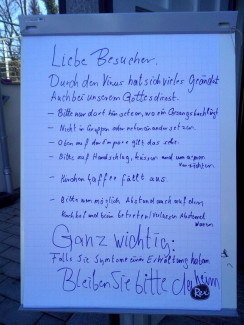 Liebe Besucher.
Durch den Virus hat sich vieles geändert
Auch bei unserem Gottesdienst.
- Bitte nur dort hinsetzen, wo ein Gesangbuch liegt
- Nicht in Gruppen oder nebeneinander setzen.
- Oben auf der Empore gilt das
- Bitte auf Handschlag, küssen und umarmen verzichten.
- Kirchen Kaffee fällt aus.
- Bitte wenn möglich Abstand auch auf dem
beim betreten/verlassen Abstand
Ganz wichtig:
Falls Sie Symtome einer Erkältung haben
Bleiben Sie bitte daheim